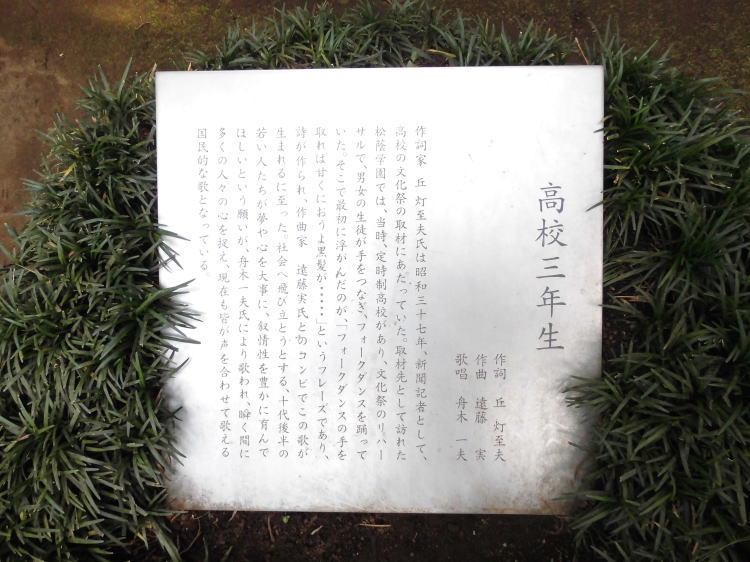 高校三年生
作詞 丘 灯至夫
作曲 遠藤 実
歌唱 舟木 一夫
作詞家 丘 灯至夫氏は昭和三十七年、新聞記者として、
高校の文化祭の取材にあたっていた。取材先として訪れた
松蔭学園では、当時、定時制高校があり、文化祭のリハー
サルで、男女の生徒が手をつなぎ、フォークダンスを踊って
いた。そこで最初に浮かんだのが、「フォークダンスの手を
取れば甘くにおうよ黒髪が・・・・」というフレーズであり、
詩が作られ、作曲家 遠藤実氏とのコンビでこの歌が
生まれるに至った。社会へ飛び立とうとする、十代後半の
若い人たちが夢や心を大事に、叙情性を豊かに育んで
ほしいという願いが、舟木一夫氏により歌われ、瞬く間に
多くの人々の心を捉え、現在も皆が声を合わせて歌える
国民的な歌となっている。